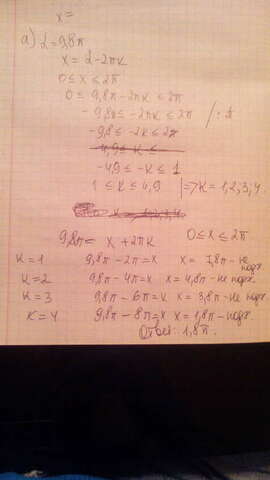 x =
а) α = 9,8π
x = α - 2πк
0 ≤ x ≤ 2π
0 ≤ 9,8π - 2πк ≤ 2π
- 9,8π ≤ -2πк ≤ 2π
-9,8 ≤ -2к ≤ 2
-4,9 ≤ к ≤
-4,9 ≤ -к ≤ 1
1 ≤ к ≤ 4,9 | => к = 1,2,3,4
9,8π = x + 2πк 0 ≤ x ≤ 2π
к = 1 9,8π - 2π = x x = 7,8π - не подх.
к = 2 9,8π - 4π = x x = 4,8π - не подх.
к = 3 9,8π - 6π = x x = 3,8π - не подх.
к = 4 9,8π - 8π = x x = 1,8π - подх.
Ответ: 1,8π.